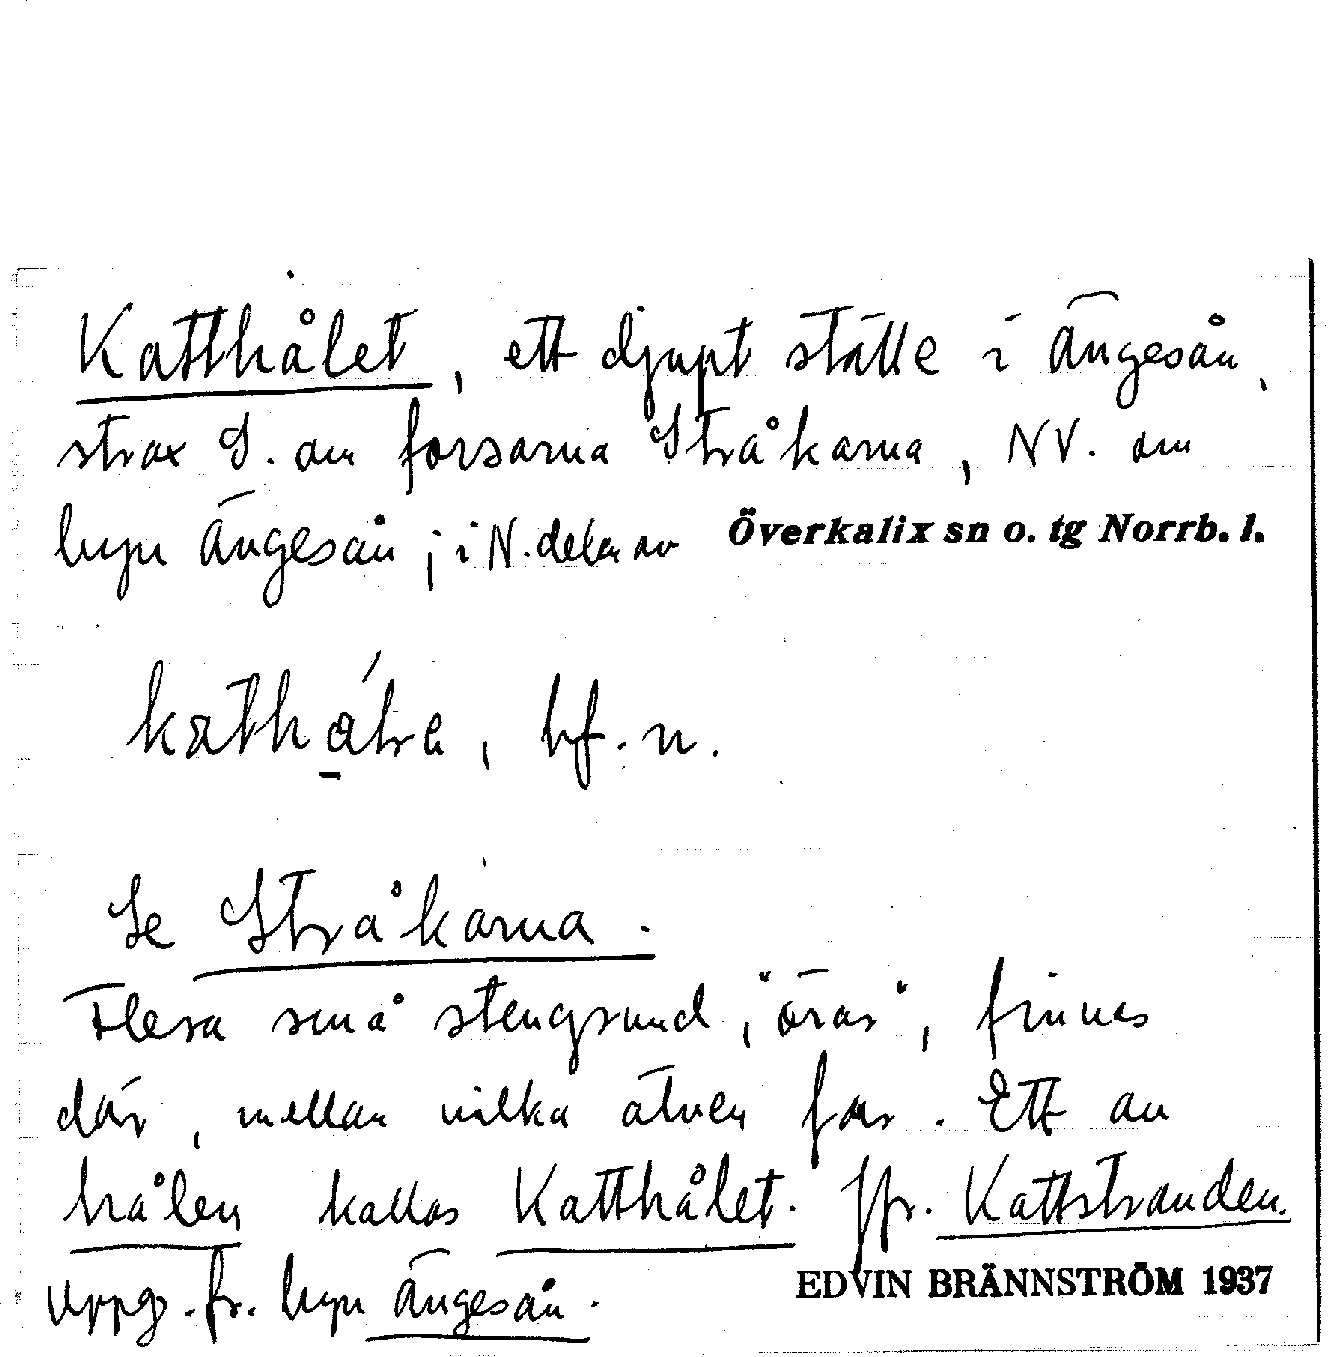 Katthålet, ett djupt ställe i Ängesån,
strax S. om forsarna Stråkarna, NV. om
byn Ängesån; i N. delen av Överkalix sn o. tg Norrb. l.
bf. n.
Se Stråkarna.
Flera små stengrund, "örar", finnas
där, mellan vilka älven far. Ett av
hålen kallas Katthålet. Jfr. Kattstranden.
Uppg. fr. byn Ängesån.
EDVIN BRÄNNSTRÖM 1937